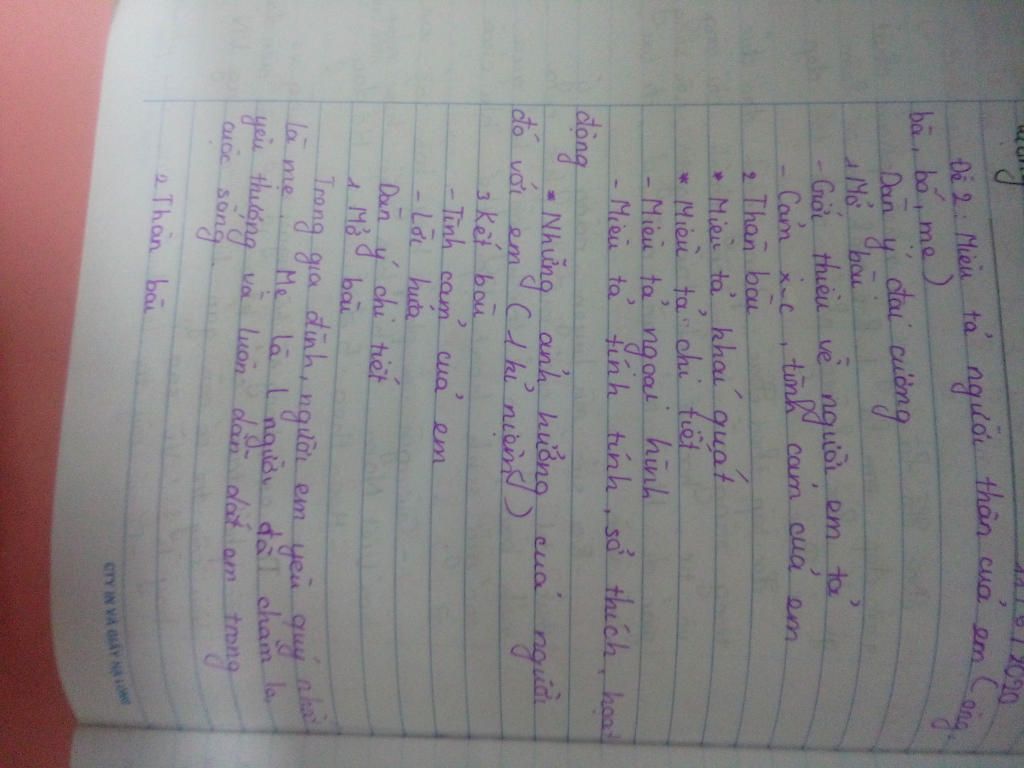 11 / 6 / 2020
Đề 2: Miêu tả người thân của em (ông,
bà, bố, mẹ)
Dàn ý đại cương
1 Mở bài
- Giới thiệu về người em tả
- Cảm x-c, tình cảm của em
2 Thân bài
* Miêu tả khái quát
* Miêu tả chi tiết
- Miêu tả ngoại hình
- Miêu tả tính tình, sở thích, hoạt
động
* Những ảnh hưởng của người
đó với em (1 kỉ niệm)
3 Kết bài
- Tình cảm của em
- Lời hứa
Dàn ý chi tiết
1 Mở bài
Trong gia đình, người em yêu quý nhất
là mẹ. Mẹ là 1 người đã chăm lo,
yêu thương và luôn dẫn dắt em trong
cuộc sống.
2 Thân bài
CTY IN VÀ GIẤY HẠ LONG